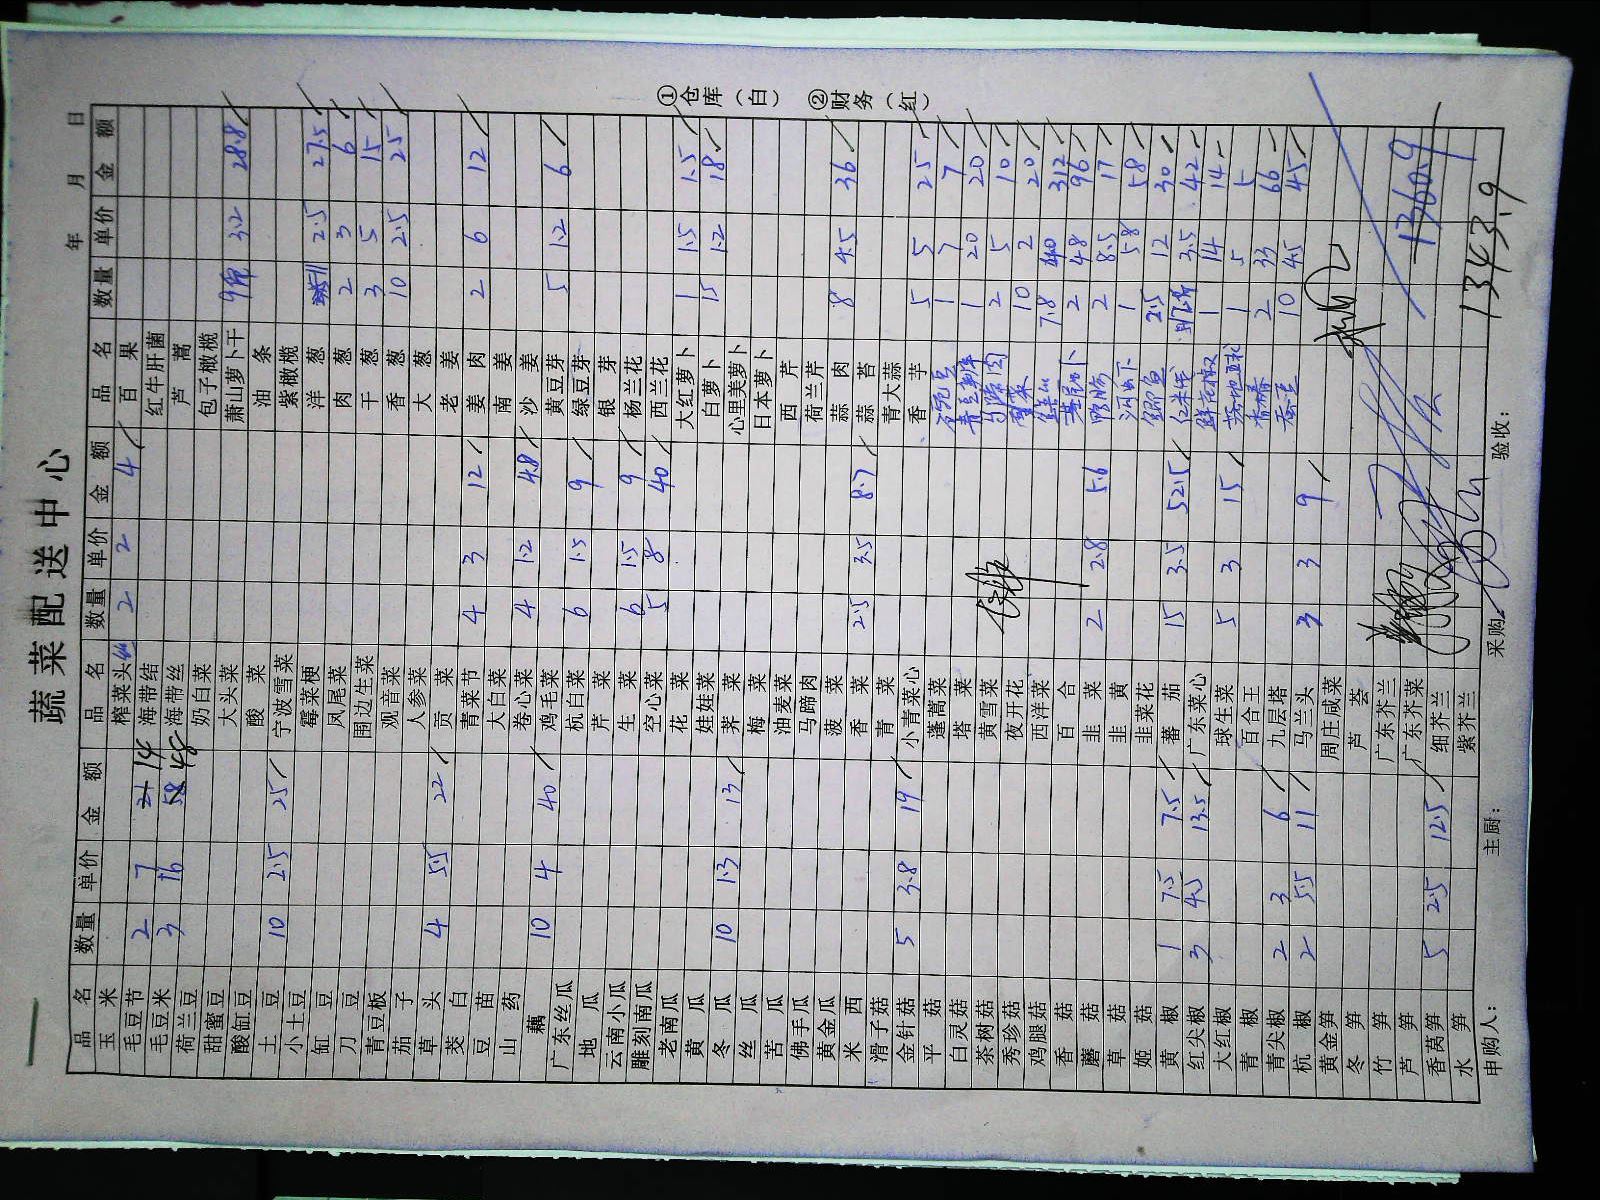 蔬菜配送中心
年 月 日
品名 数量 单价 金额 品名 数量 单价 金额 品名 数量 单价 金额
玉米 榨菜头 2 2 4 百果
毛豆节 2 7 21 14 海带结 红牛肝菌
毛豆米 3 16 58 48 海带丝 芦蒿
荷兰豆 奶白菜 包子橄榄
甜蜜豆 大头菜 萧山萝卜干 3.2 28.8
酸缸豆 酸菜 油条
土豆 10 2.5 25 宁波雪菜 紫橄榄
小土豆 霉菜梗 洋葱 11 2.5 27.5
缸豆 凤尾菜 肉葱 2 3 6
刀豆 围边生菜 干葱 3 5 15
青豆板 观音菜 香葱 10 2.5 25
茄子 人参菜 大葱
草头 4 5.5 22 贡菜 老姜
茭白 青菜节 4 3 12 姜肉 2 6 12
豆苗 大白菜 南姜
山药 卷心菜 4 1.2 4.8 沙姜
藕 10 4 40 鸡毛菜 黄豆芽 5 1.2 6
广东丝瓜 杭白菜 6 1.5 9 绿豆芽
地瓜 芹菜 银芽
云南小瓜 生菜 6 1.5 9 杨兰花
雕刻南瓜 空心菜 5 8 40 西兰花
老南瓜 花菜 大红萝卜 1 1.5 1.5
黄瓜 娃娃菜 白萝卜 15 1.2 18
冬瓜 10 1.3 13 荠菜 心里美萝卜
丝瓜 梅菜 日本萝卜
苦瓜 油麦菜 西芹
佛手瓜 马蹄肉 荷兰芹
黄金瓜 菠菜 蒜肉 8 4.5 36
米西 香菜 2.5 3.5 8.7 蒜苔
滑子菇 青菜 青大蒜
金针菇 5 3.8 19 小青菜心 香芋 5 5 25
平菇 蓬蒿菜 1 7 7
白灵菇 塔菜 1 20 20
茶树菇 黄雪菜 2 5 10
秀珍菇 夜开花 10 2 20
鸡腿菇 西洋菜 7.8 40 312
香菇 百合 2 48 96
蘑菇 韭菜 2 2.8 5.6 2 8.5 17
草菇 韭黄 河虾 1 58 58
姬菇 韭菜花 鲫鱼 2.5 12 30
黄椒 1 7.5 7.5 蕃茄 15 3.5 52.5 红米线 3.5 42
红尖椒 3 4.5 13.5 广东菜心 鲜花椒 1 14 14
大红椒 球生菜 5 3 15 1 5 5
青椒 百合王 香椿 2 33 66
青尖椒 2 3 6 九层塔 10 4.5 45
杭椒 2 5.5 11 马兰头 3 3 9
黄金笋 周庄咸菜
冬笋 芦荟
竹笋 广东芥兰
芦笋 广东芥菜 1360.9
香莴笋 5 2.5 12.5 细芥兰
水笋 紫芥兰 1343.9
申购人： 主厨： 采购： 验收：
①仓库（白） ②财务（红）